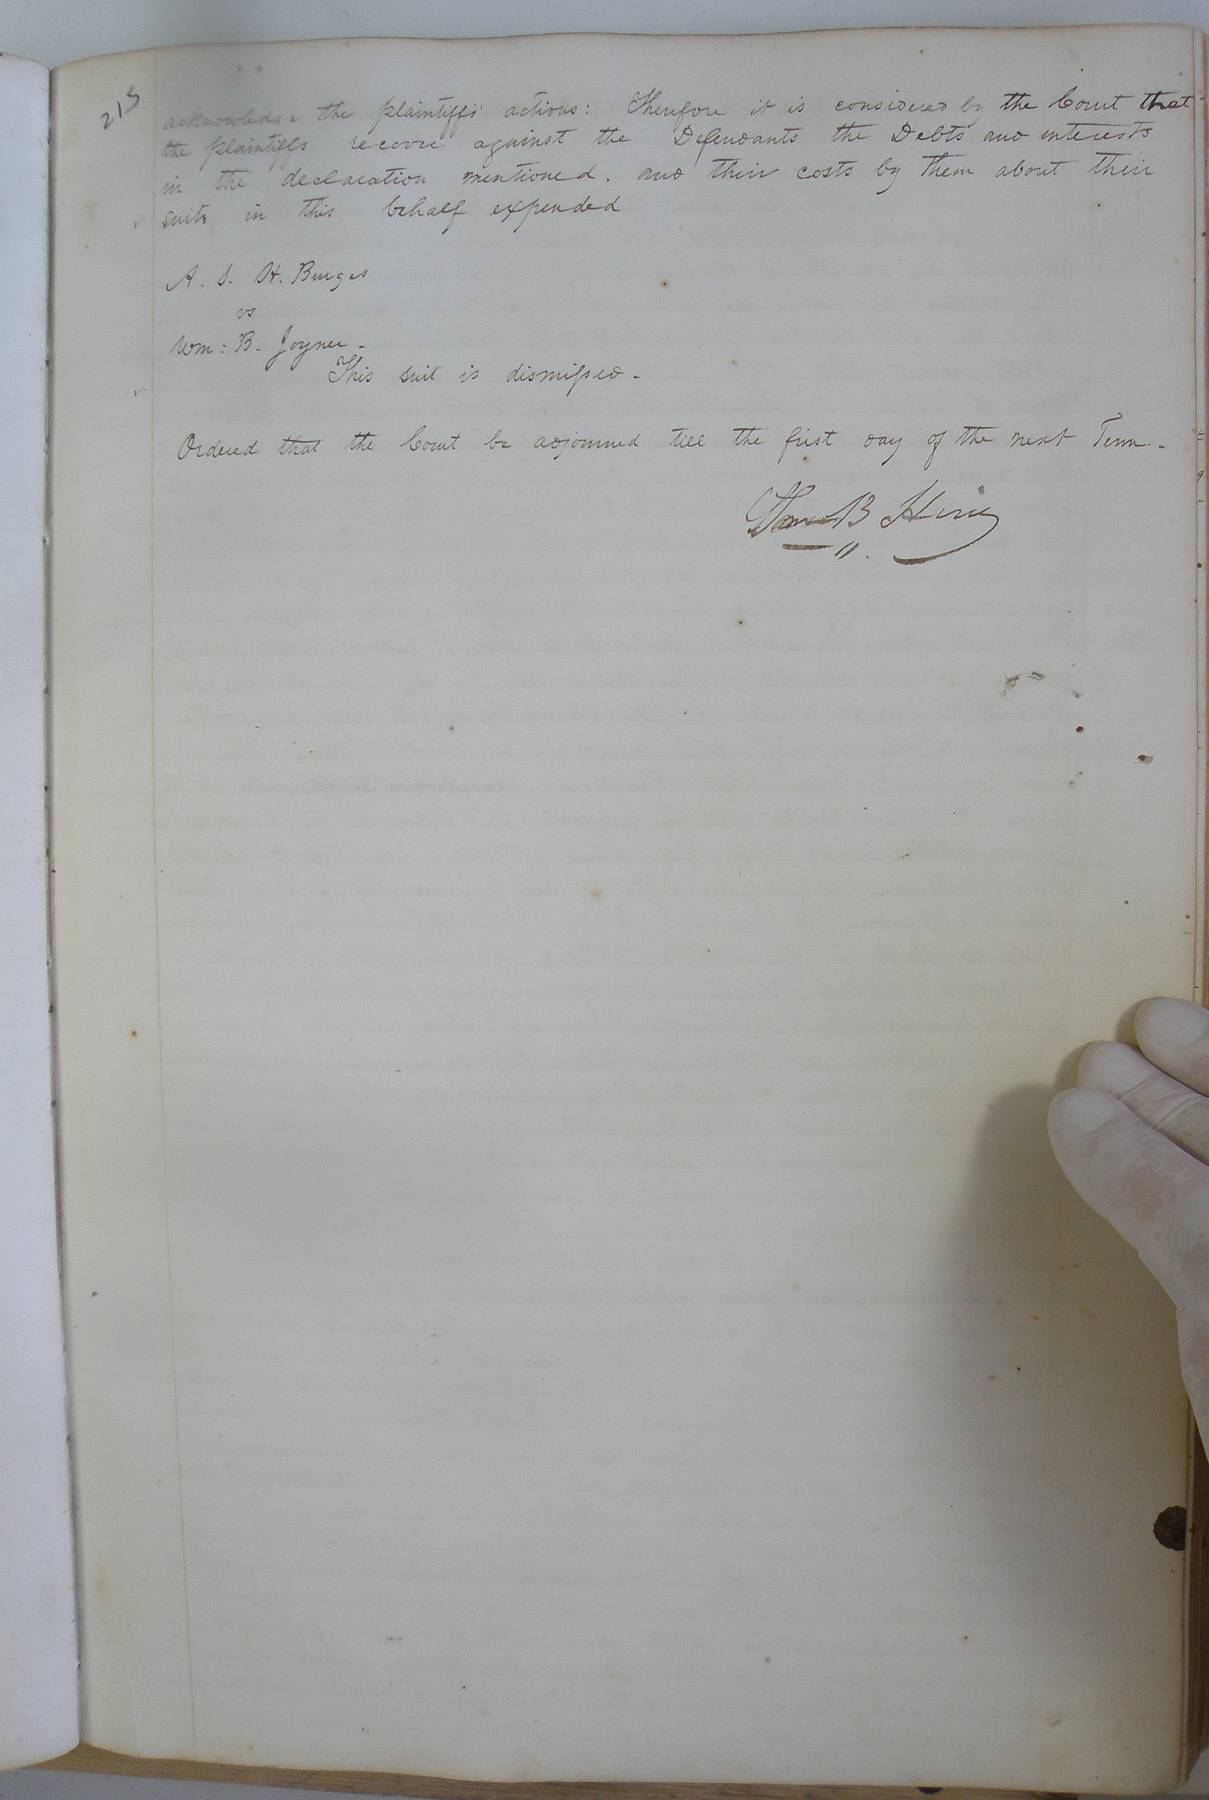 215
acknowledge the plaintiffs' actions: Therefore it is considered by the Court that
the plaintiffs recover against the Defendants the Debts and interests
in the declaration mentioned. and their costs by them about their
suits in this behalf expended
A. S. H. Burges
vs
Wm: B. Joyner.
This suit is dismissed.
Ordered that the Court be adjourned till the first day of the next Term.
B